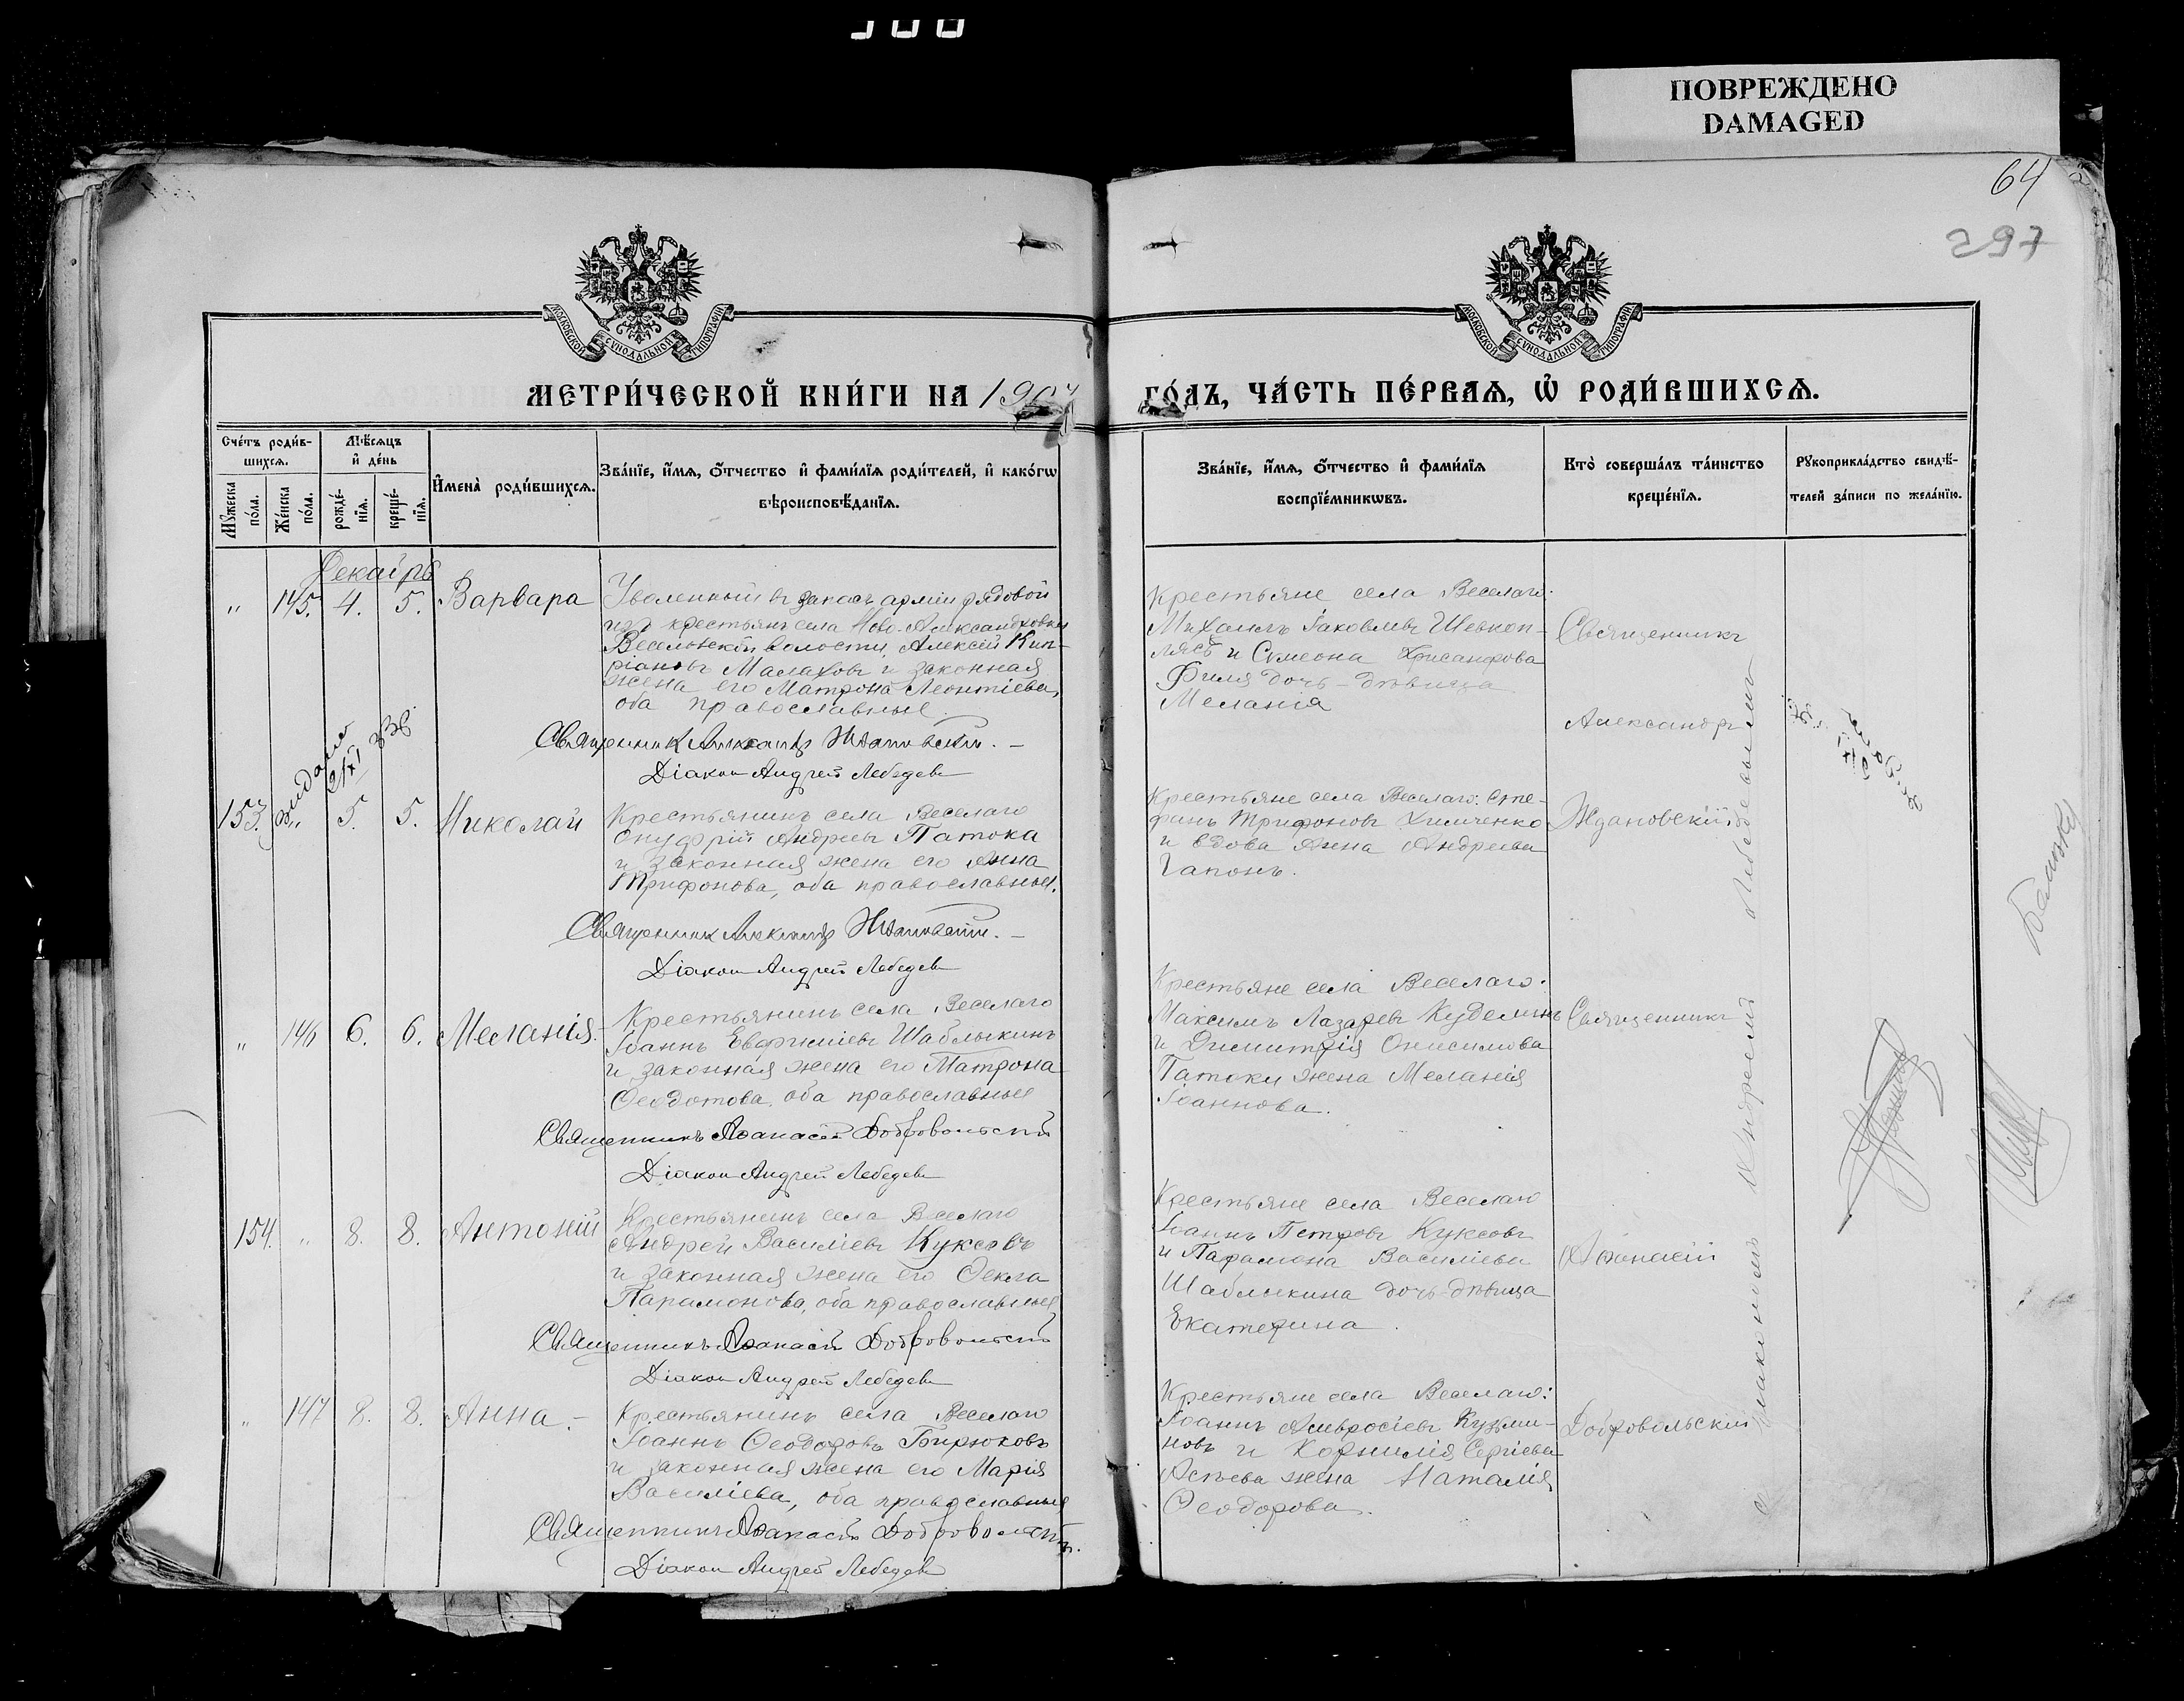 ПОВРЕЖДЕНО
DAMAGED
64
297
МОСКОВСКОЙ СѴНОДАЛЬНОЙ ТИПОГРАФІИ
МОСКОВСКОЙ СѴНОДАЛЬНОЙ ТИПОГРАФІИ
МЕТРИ́ЧЕСКОЙ КНИ́ГИ НА 190
ГО́ДЪ, ЧА́СТЬ ПЕ́РВАѦ, Ѡ҆ РОДИ́ВШИХСѦ.
Сче́тъ роди́в-
шихсѧ.
Мꙋ́жеска по́ла.
Же́нска по́ла.
Мѣ́сѧцъ
и҆ де́нь
рожде́-
нїѧ.
креще́-
нїѧ.
И҆мена̀ роди́вшихсѧ.
Зва́нїе, и҆́мѧ, ѻ҆́тчество и҆ фами́лїѧ роди́телей, и҆ како́гѡ
вѣроисповѣ́данїѧ.
Зва́нїе, и҆́мѧ, ѻ҆́тчество и҆ фами́лїѧ
воспрїе́мникѡвъ.
Кто̀ соверша́лъ та́инство
креще́нїѧ.
Рꙋкоприкла́дство свидѣ́-
телей за́писи по жела́нїю.
Декабрь
" 145. 4. 5. Варвара
Уволенный въ запасъ арміи рядовой
изъ крестьянъ села Ново-Александровки
Веселовской волости, Алексій Кип-
ріановъ Малаховъ и законная
жена его Матрона Леонтіева,
оба православные.
Священникъ Александръ Ждановскій. –
Діаконъ Андрей Лебедевъ
Крестьяне села Веселаго:
Михаилъ Іаковлевъ Шевкоп-
лясъ и Симеона Хрисанфова
Филя дочь-дѣвица
Меланія
Священникъ
Александръ
Ждановскій
153. " 5. 5. Николай
Крестьянинъ села Веселаго
Онуфрій Андреевъ Патока
и законная жена его Анна
Трифонова, оба православные.
Священникъ Александръ Ждановскій. –
Діаконъ Андрей Лебедевъ
Крестьяне села Веселаго: Сте-
фанъ Трифоновъ Химченко
и вдова Анна Андреева
Гапонъ.
" 146 6. 6. Меланія.
Крестьянинъ села Веселаго
Іоаннъ Евфиміевъ Шаблыкинъ
и законная жена его Матрона
Ѳеодотова, оба православные
Священникъ Аѳанасій Добровольскій
Діаконъ Андрей Лебедевъ
Крестьяне села Веселаго:
Максимъ Лазаревъ Куделинъ
и Димитрія Онисимова
Патоки жена Меланія
Іоаннова.
Священникъ
Аѳанасій
Добровольскій
154. " 8. 8. Антоній
Крестьянинъ села Веселаго
Андрей Василіевъ Куксовъ
и законная жена его Ѳекла
Парамонова, оба православные
Священникъ Аѳанасій Добровольскій
Діаконъ Андрей Лебедевъ
Крестьяне села Веселаго
Іоаннъ Петровъ Куксовъ
и Парамона Василіева
Шаблыкина дочь-дѣвица
Екатерина.
" 147 8. 8. Анна. –
Крестьянинъ села Веселаго
Іоаннъ Ѳеодоровъ Бирюковъ
и законная жена его Марія
Василіева, оба православные
Священникъ Аѳанасій Добровольскій.
Діаконъ Андрей Лебедевъ
Крестьяне села Веселаго:
Іоаннъ Амвросіевъ Кузьми-
новъ и Корнилія Сергіева
жена Наталія
Ѳеодорова.
съ діакономъ Андреемъ Лебедевымъ